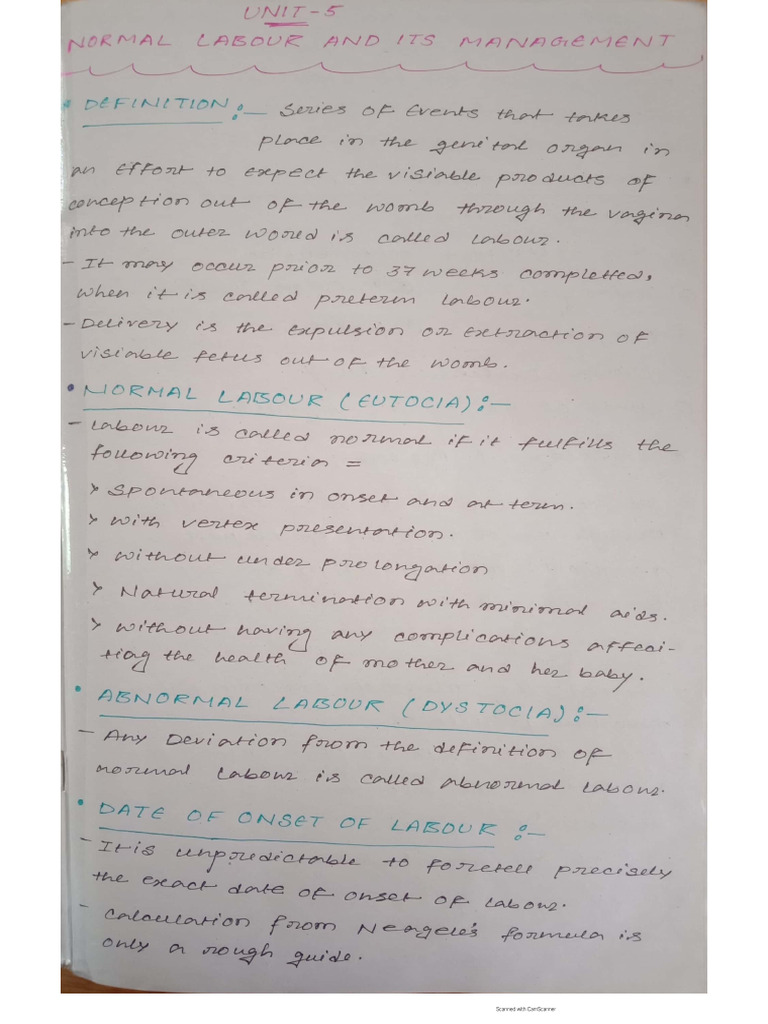 UNIT-5
NORMAL LABOUR AND ITS MANAGEMENT
• DEFINITION :- Series of Events that takes
place in the genital organ in
an effort to expect the visiable products of
conception out of the womb through the vagina
into the outer world is called labour.
- It may occur prior to 37 weeks completted,
when it is called preterm labour.
- Delivery is the expulsion or extraction of
visiable fetus out of the womb.
• NORMAL LABOUR (EUTOCIA) :-
- Labour is called normal if it fulfills the
following criteria =
> Spontaneous in onset and at term.
> with vertex presentation.
> without under prolongation
> Natural termination with minimal aids.
> without having any complications affeci-
tiag the health of mother and her baby.
• ABNORMAL LABOUR (DYSTOCIA) :-
- Any Deviation from the definition of
normal labour is called abnormal labour.
• DATE OF ONSET OF LABOUR :-
- It is unpredictable to foretell precisely
the exact date of onset of labour.
- calculation from Neagele's formula is
only a rough guide.
Scanned with CamScanner